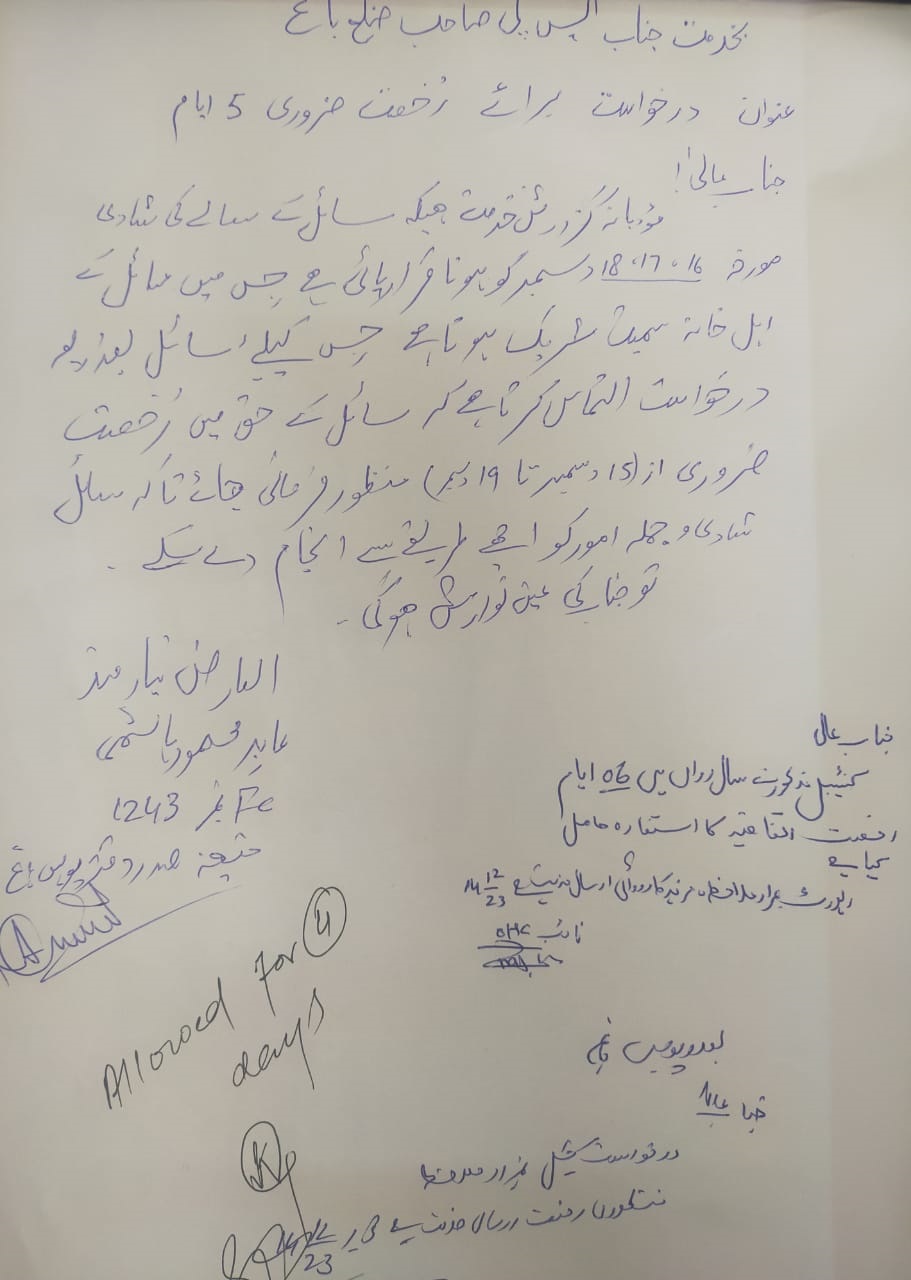 بخدمت جناب ایس پی صاحب ضلع باغ
عنوان درخواست برائے رُخصت ضروری 5 ایام
جناب عالیٰ!
مودبانہ گزارش خدمت ہیکہ سائل کے سالے کی شادی
مورخہ 16، 17، 18 دسمبر کو ہونا قرار پائی ہے جس میں سائل کے
اہل خانہ سمیت شریک ہونا ہے جس کیلیے سائل بذریعہ
درخواست التماس کرتا ہے کہ سائل کے حق میں رُخصت
ضروری از (15 دسمبر تا 19 دسمبر) منظور فرمائی جائے تاکہ سائل
شادی و جملہ امور کو اچھے طریقے سے انجام دے سکے۔
تو جناب کی عین نوازش ہوگی۔
العارض نیاز مند
عابد محمود ہاشمی
Fc نمبر 1243
متعینہ صدر دفتر پولیس باغ
جناب عالی
کنسٹیبل مذکور نے سال رواں میں 06 ایام
رخصت اتفاقیہ کا استفادہ حاصل
کیا ہے
رپورٹ بمراد ملاحظہ مزید کاروائی ارسال خدمت ہے 14 12/23
نائب OHC
Allowed For 4
days
جناب عالیٰ
درخواست بمراد ملاحظہ
منظوری رخصت ارسال خدمت ہے 14 12/23